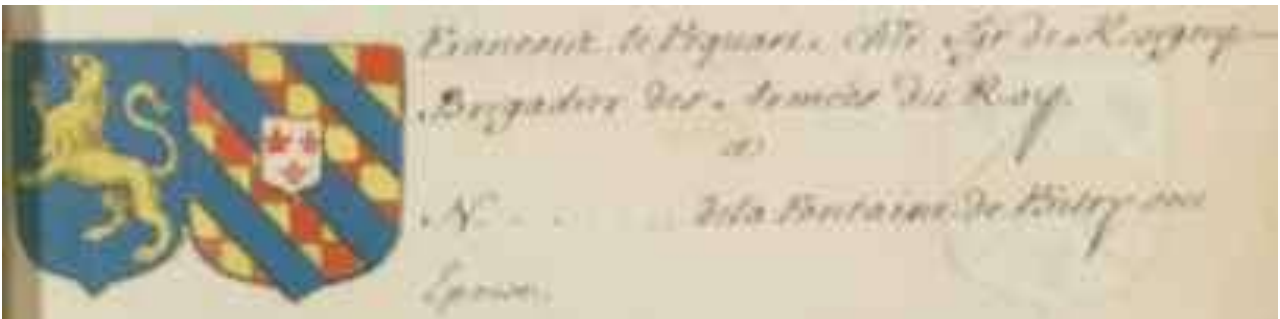 Francois le Pquart. Ch.er Sgr de
Brigadier des Armées du Roy.
et
N. . . . . . . . dela Fontaine de sou
Epouse.